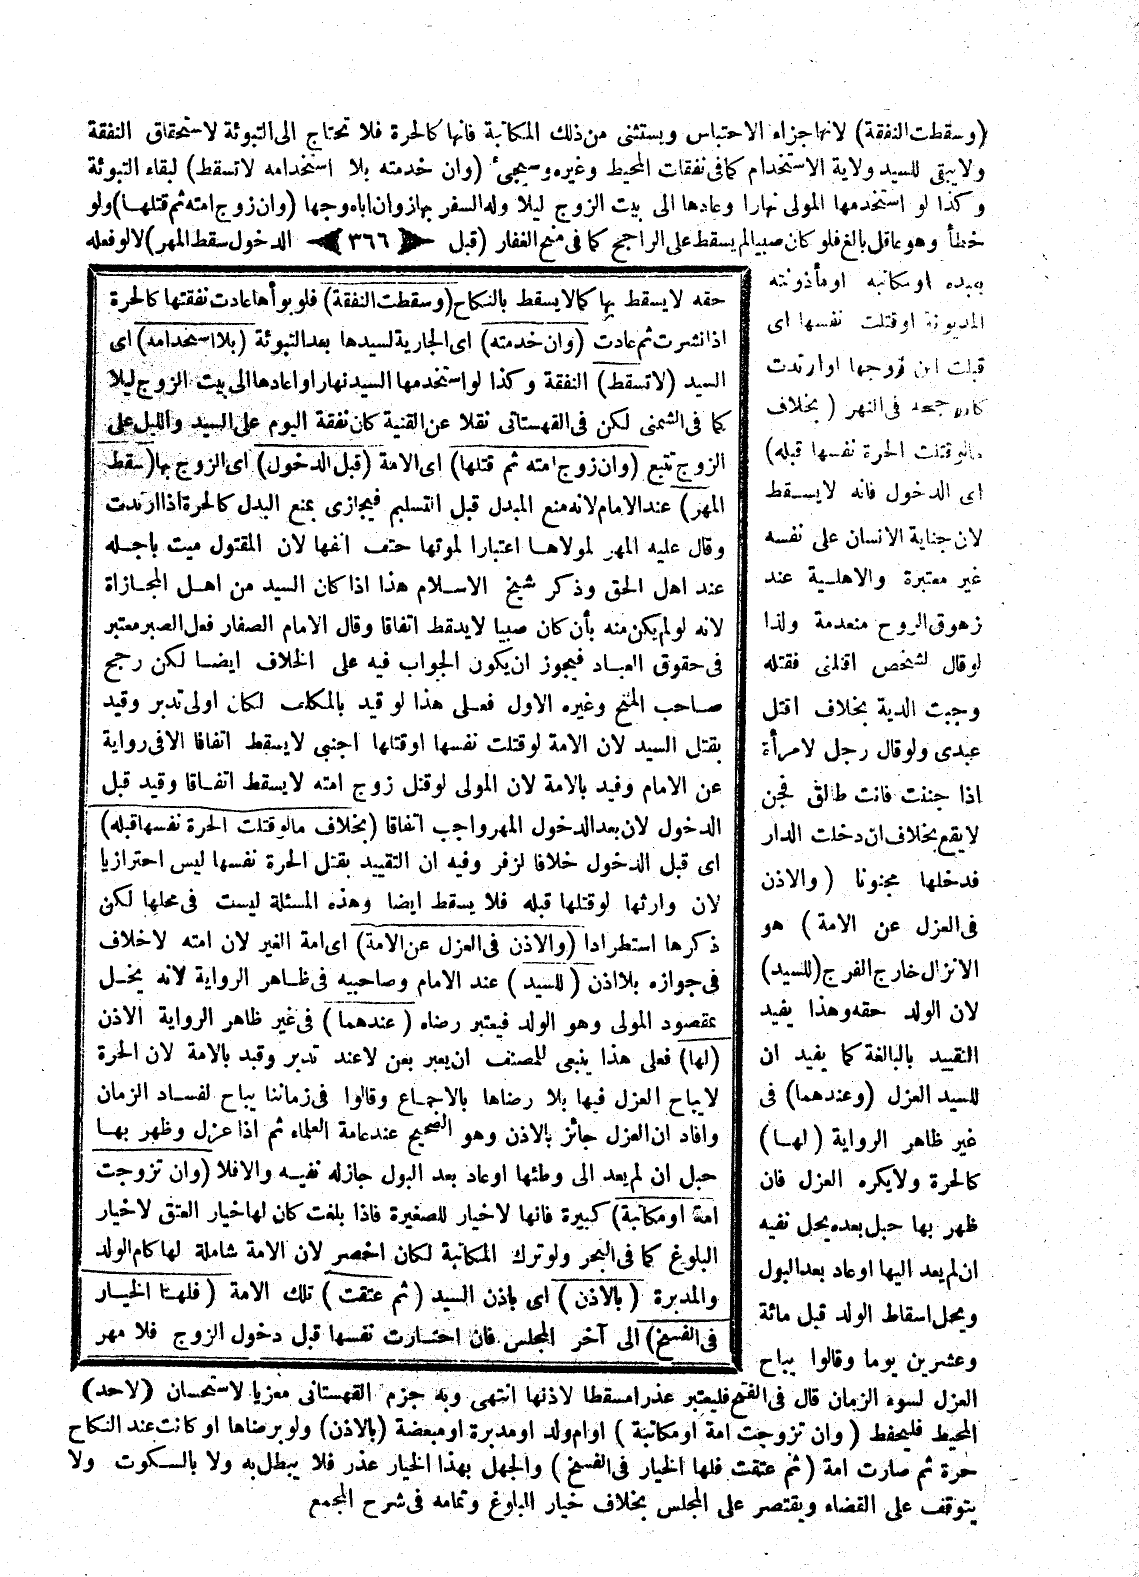 (وسقطت النفقة) لانها جزاء الاحتباس ويستثنى من ذلك المكاتبة فانها كالحرة فلا تحتاج الى التبوئة لاستحقاق النفقة
ولا يبقى للسيد ولاية الاستخدام كما فى نفقات المحيط وغيره وسيجىء (وان خدمته بلا استخدامه لا تسقط) لبقاء التبوئة
وكذا لو استخدمها المولى نهارا وعادها الى بيت الزوج ليلا وله السفر بها وان اباه وجها (وان زوج امته ثم قتلها) ولو
خطأ وهو عاقل بالغ فلو كان صبيا لم يسقط على الراجح كما فى منح الغفار (قبل ﴿٣٦٦﴾ الدخول سقط المهر) لا لو فعله
بعبده او مكاتبه او مأذونته
المديونة او قتلت نفسها اى
قبلت ابن زوجها او ارتدت
جمعه فى النهر (بخلاف
مالو قتلت الحرة نفسها قبله)
اى الدخول فانه لا يسقط
لان جناية الانسان على نفسه
غير معتبرة والاهلية عند
زهوق الروح منعدمة ولذا
لو قال لشخص اقتلنى فقتله
وجبت الدية بخلاف اقتل
عبدى ولو قال رجل لامرأة
اذا جننت فانت طالق فجن
لا يقع بخلاف ان دخلت الدار
فدخلها مجنونا (والاذن
فى العزل عن الامة) هو
الانزال خارج الفرج (للسيد)
لان الولد حقه وهذا يفيد
التقييد بالبالغة كما يفيد ان
للسيد العزل (وعندهما) فى
غير ظاهر الرواية (لها)
كالحرة ولا يكره العزل فان
ظهر بها حبل بعده يحل نفيه
ان لم يعد اليها او عاد بعد البول
ويحل اسقاط الولد قبل مائة
وعشرين يوما وقالوا يباح
العزل لسوء الزمان قال فى الفتح فليعتبر عذرا مسقطا لاذنها انتهى وبه جزم القهستانى معزيا لاستحسان (لاحد)
المحيط فليحفظ (وان تزوجت امة او مكاتبة) او ام ولد او مدبرة او مبعضة (بالاذن) ولو برضاها او كانت عند النكاح
حرة ثم صارت امة (ثم عتقت فلها الخيار فى الفسخ) والجهل بهذا الخيار عذر فلا يبطل به ولا بالسكوت ولا
يتوقف على القضاء ويقتصر على المجلس بخلاف خيار البلوغ وتمامه فى شرح المجمع
حقه لا يسقط بها كما لا يسقط بالنكاح (وسقطت النفقة) فلو بوأها عادت نفقتها كالحرة
اذا نشزت ثم عادت (وان خدمته) اى الجارية لسيدها بعد التبوئة (بلا استخدامه) اى
السيد (لا تسقط) النفقة وكذا لو استخدمها السيد نهارا واعادها الى بيت الزوج ليلا
كما فى الشمنى لكن فى القهستانى نقلا عن القنية كان نفقة اليوم على السيد والليل على
الزوج تتبع (وان زوج امته ثم قتلها) اى الامة (قبل الدخول) اى الزوج بها (سقط
المهر) عند الامام لانه منع المبدل قبل التسليم فيجازى بمنع البدل كالحرة اذا ارتدت
وقال عليه المهر لمولاها اعتبارا لموتها حتف انفها لان المقتول ميت باجله
عند اهل الحق وذكر شيخ الاسلام هذا اذا كان السيد من اهل المجازاة
لانه لو لم يكن منه بأن كان صبيا لا يسقط اتفاقا وقال الامام الصفار فعل الصبر معتبر
فى حقوق العباد فيجوز ان يكون الجواب فيه على الخلاف ايضا لكن رجح
صاحب المنح وغيره الاول فعلى هذا لو قيد بالمكلف لكان اولى تدبر وقيد
بقتل السيد لان الامة لو قتلت نفسها او قتلها اجنبى لا يسقط اتفاقا الا فى رواية
عن الامام وقيد بالامة لان المولى لو قتل زوج امته لا يسقط اتفاقا وقيد قبل
الدخول لان بعد الدخول المهر واجب اتفاقا (بخلاف مالو قتلت الحرة نفسها قبله)
اى قبل الدخول خلافا لزفر وفيه ان التقييد بقتل الحرة نفسها ليس احترازيا
لان وارثها لو قتلها قبله فلا يسقط ايضا وهذه المسئلة ليست فى محلها لكن
ذكرها استطرادا (والاذن فى العزل عن الامة) اى امة الغير لان امته لا خلاف
فى جوازه بلا اذن (للسيد) عند الامام وصاحبيه فى ظاهر الرواية لانه يخل
بمقصود المولى وهو الولد فيعتبر رضاه (عندهما) فى غير ظاهر الرواية الاذن
(لها) فعلى هذا ينبغى للمصنف ان يعبر بعن لا عند تدبر وقيد بالامة لان الحرة
لا يباح العزل فيها بلا رضاها بالاجماع وقالوا فى زماننا يباح لفساد الزمان
وافاد ان العزل جائز بالاذن وهو الصحيح عند عامة العلماء ثم اذا عزل وظهر بها
حبل ان لم يعد الى وطئها او عاد بعد البول جاز له نفيه والا فلا (وان تزوجت
امة او مكاتبة) كبيرة فانها لا خيار للصغيرة فاذا بلغت كان لها خيار العتق لا خيار
البلوغ كما فى البحر ولو ترك المكاتبة لكان اخصر لان الامة شاملة لها كام الولد
والمدبرة (بالاذن) اى باذن السيد (ثم عتقت) تلك الامة (فلها الخيار
فى الفسخ) الى آخر المجلس فان اختارت نفسها قبل دخول الزوج فلا مهر